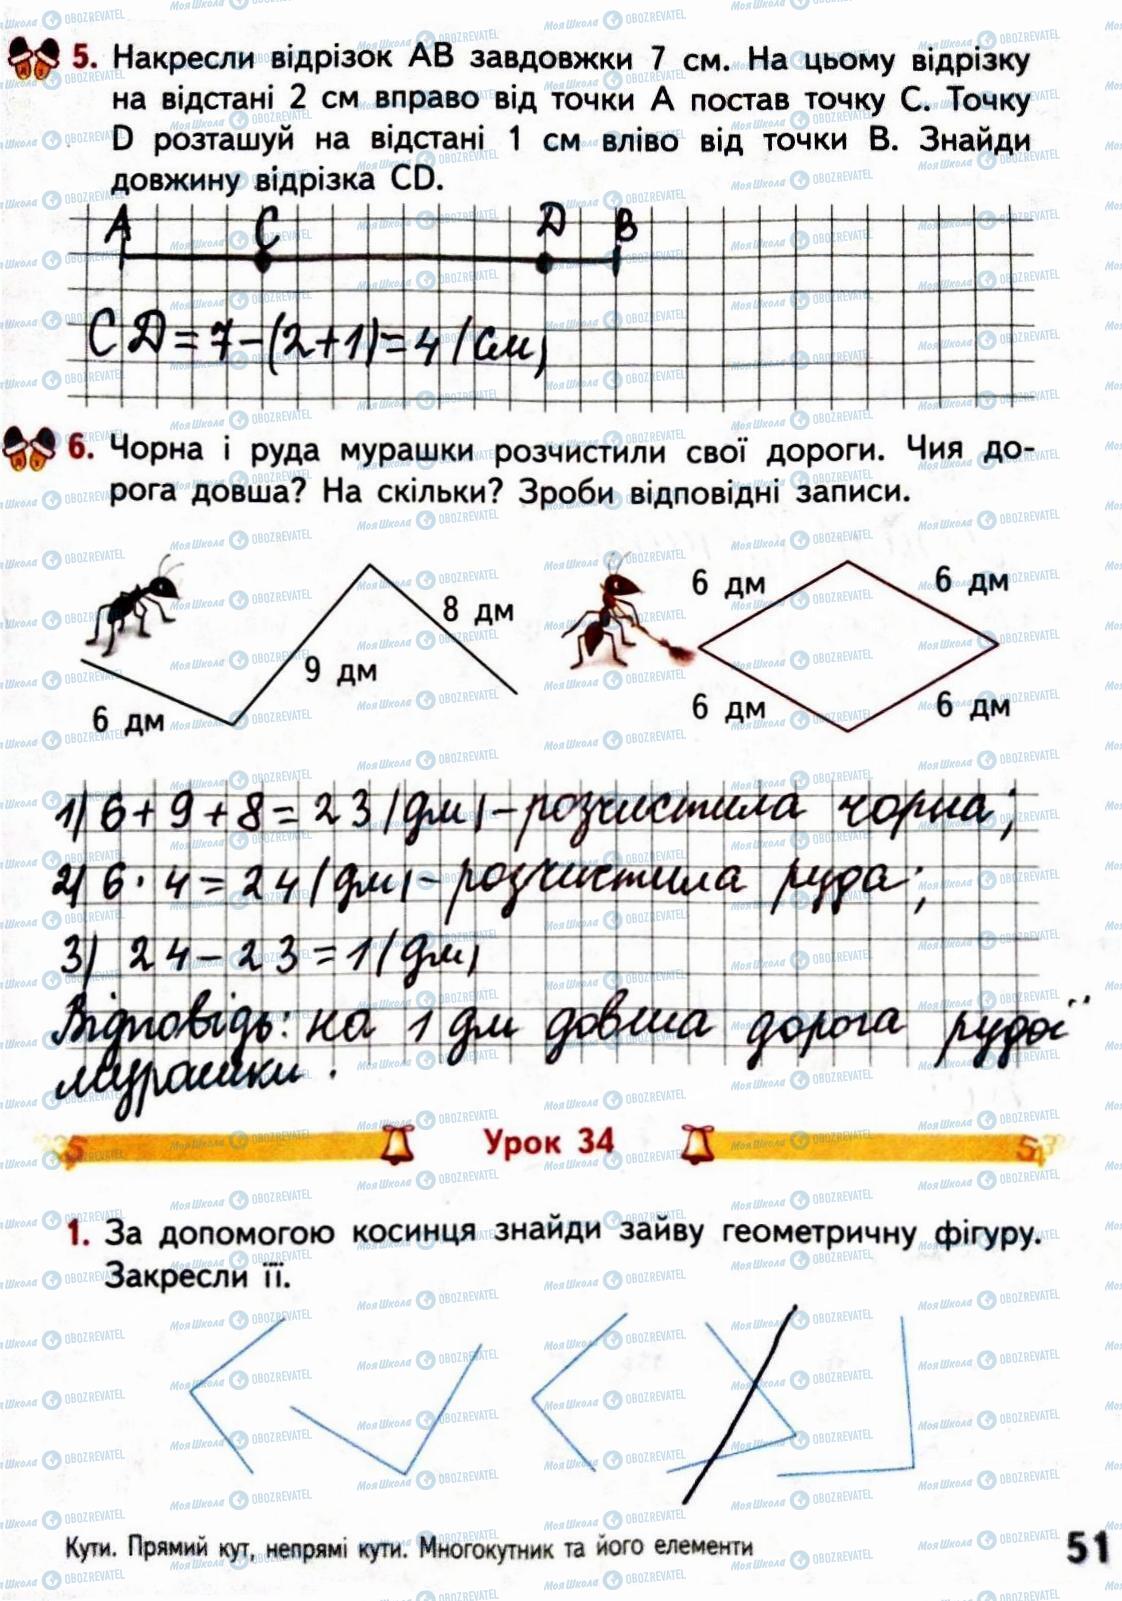 5. Накресли відрізок АВ завдовжки 7 см. На цьому відрізку
на відстані 2 см вправо від точки А постав точку С. Точку
D розташуй на відстані 1 см вліво від точки В. Знайди
довжину відрізка CD.
A C D B
CD=7-(2+1)=4(см)
6. Чорна і руда мурашки розчистили свої дороги. Чия до-
рога довша? На скільки? Зроби відповідні записи.
6 дм 9 дм 8 дм
6 дм 6 дм
6 дм 6 дм
1) 6+9+8=23(дм)-розчистила чорна;
2) 6·4=24(дм)-розчистила руда;
3) 24-23=1(дм)
Відповідь: на 1 дм довша дорога рудої
мурашки.
Урок 34
1. За допомогою косинця знайди зайву геометричну фігуру.
Закресли її.
Кути. Прямий кут, непрямі кути. Многокутник та його елементи
51
МояШкола OBOZREVATEL